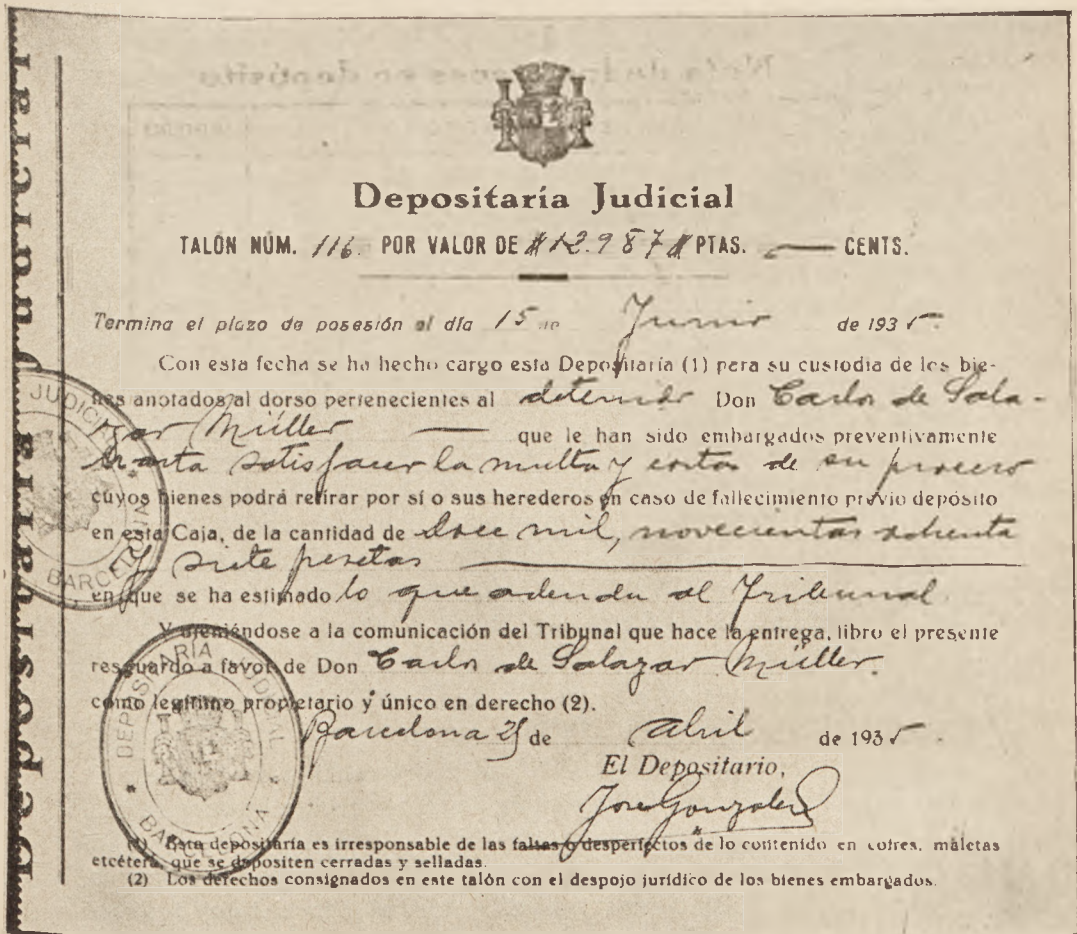 Depositaría Judicial
TALÓN NÚM. 116. POR VALOR DE #12.987# PTAS. — CENTS.
Termina el plazo de posesión el día 15 de Junio de 1935.
Con esta fecha se ha hecho cargo esta Depositaría (1) para su custodia de los bie-
nes anotados al dorso pertenecientes al detenido Don Carlos de Sala-
zar Müller — que le han sido embargados preventivamente
hasta satisfacer la multa y costas de su proceso
cuyos bienes podrá retirar por sí o sus herederos en caso de fallecimiento previo depósito
en esta Caja, de la cantidad de doce mil, novecientas ochenta
y siete pesetas —
en que se ha estimado lo que adeuda al Tribunal.
Y ateniéndose a la comunicación del Tribunal que hace la entrega, libro el presente
resguardo a favor de Don Carlos de Salazar Müller.
como legítimo propietario y único en derecho (2).
Barcelona 25 de abril de 1935.
El Depositario,
Jose Gonzalez
(1) Esta depositaría es irresponsable de las faltas o desperfectos de lo contenido en cofres, maletas
etcétera, que se depositen cerradas y selladas.
(2) Los derechos consignados en este talón con el despojo jurídico de los bienes embargados.
Depositaría Judicial
JUDICIAL
BARCELONA
DEPOSITARÍA JUDICIAL
BARCELONA